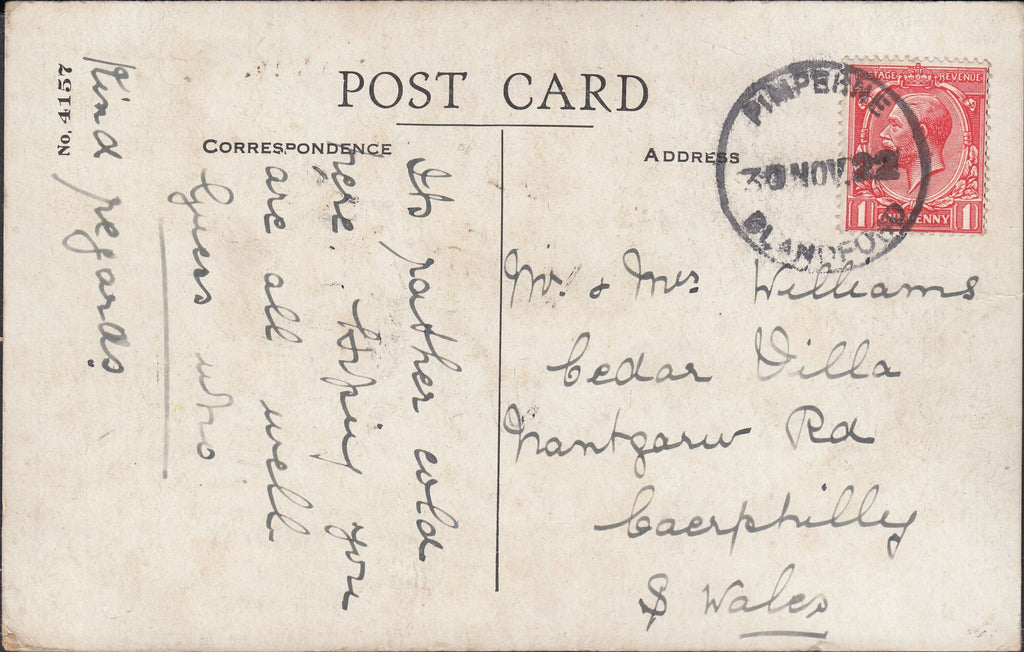 No. 4157
POST CARD
CORRESPONDENCE
ADDRESS
PIMPERNE
30 NOV. 22
BLANDFORD
POSTAGE REVENUE
1 PENNY 1
Its rather cold
here. Hoping you
are all well
Guess who
Kind regards
Mr. & Mrs Williams
Cedar Villa
Nantgarw Rd
Caerphilly
S Wales